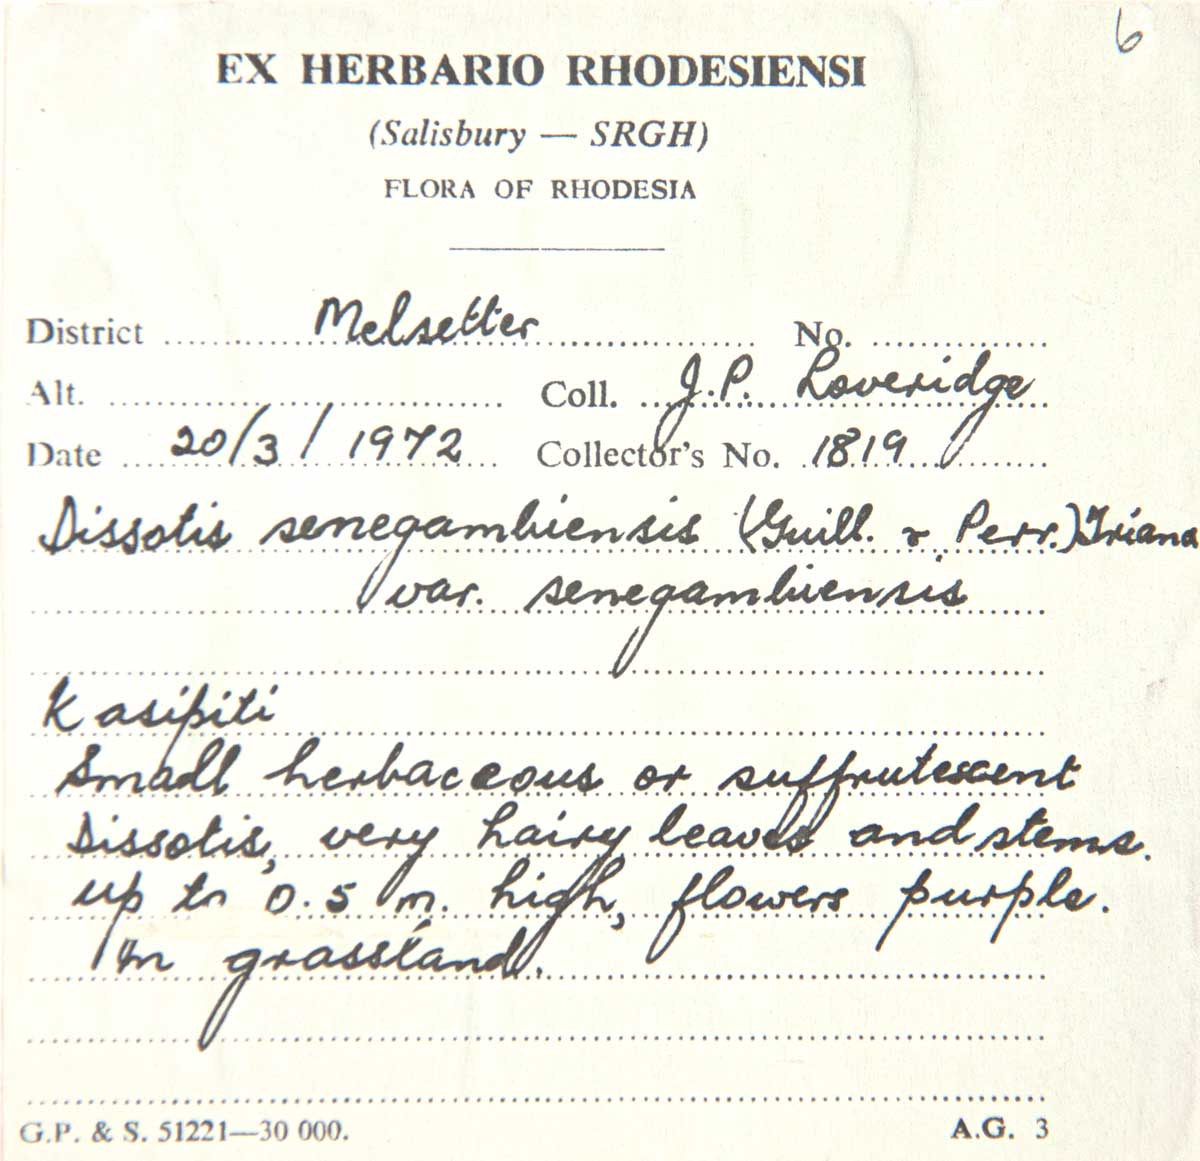 6
EX HERBARIO RHODESIENSI
(Salisbury — SRGH)
FLORA OF RHODESIA
District Melsetter No.
Alt. Coll. J.P. Loveridge
Date 20/3/1972 Collector's No. 1819
Dissotis senegambiensis (Guill. & Perr.) Triana
var. senegambiensis
Kasipiti
Small herbaceous or suffrutescent
Dissotis, very hairy leaves and stems.
up to 0.5 m. high, flowers purple.
In grassland.
G.P. & S. 51221—30 000. A.G. 3